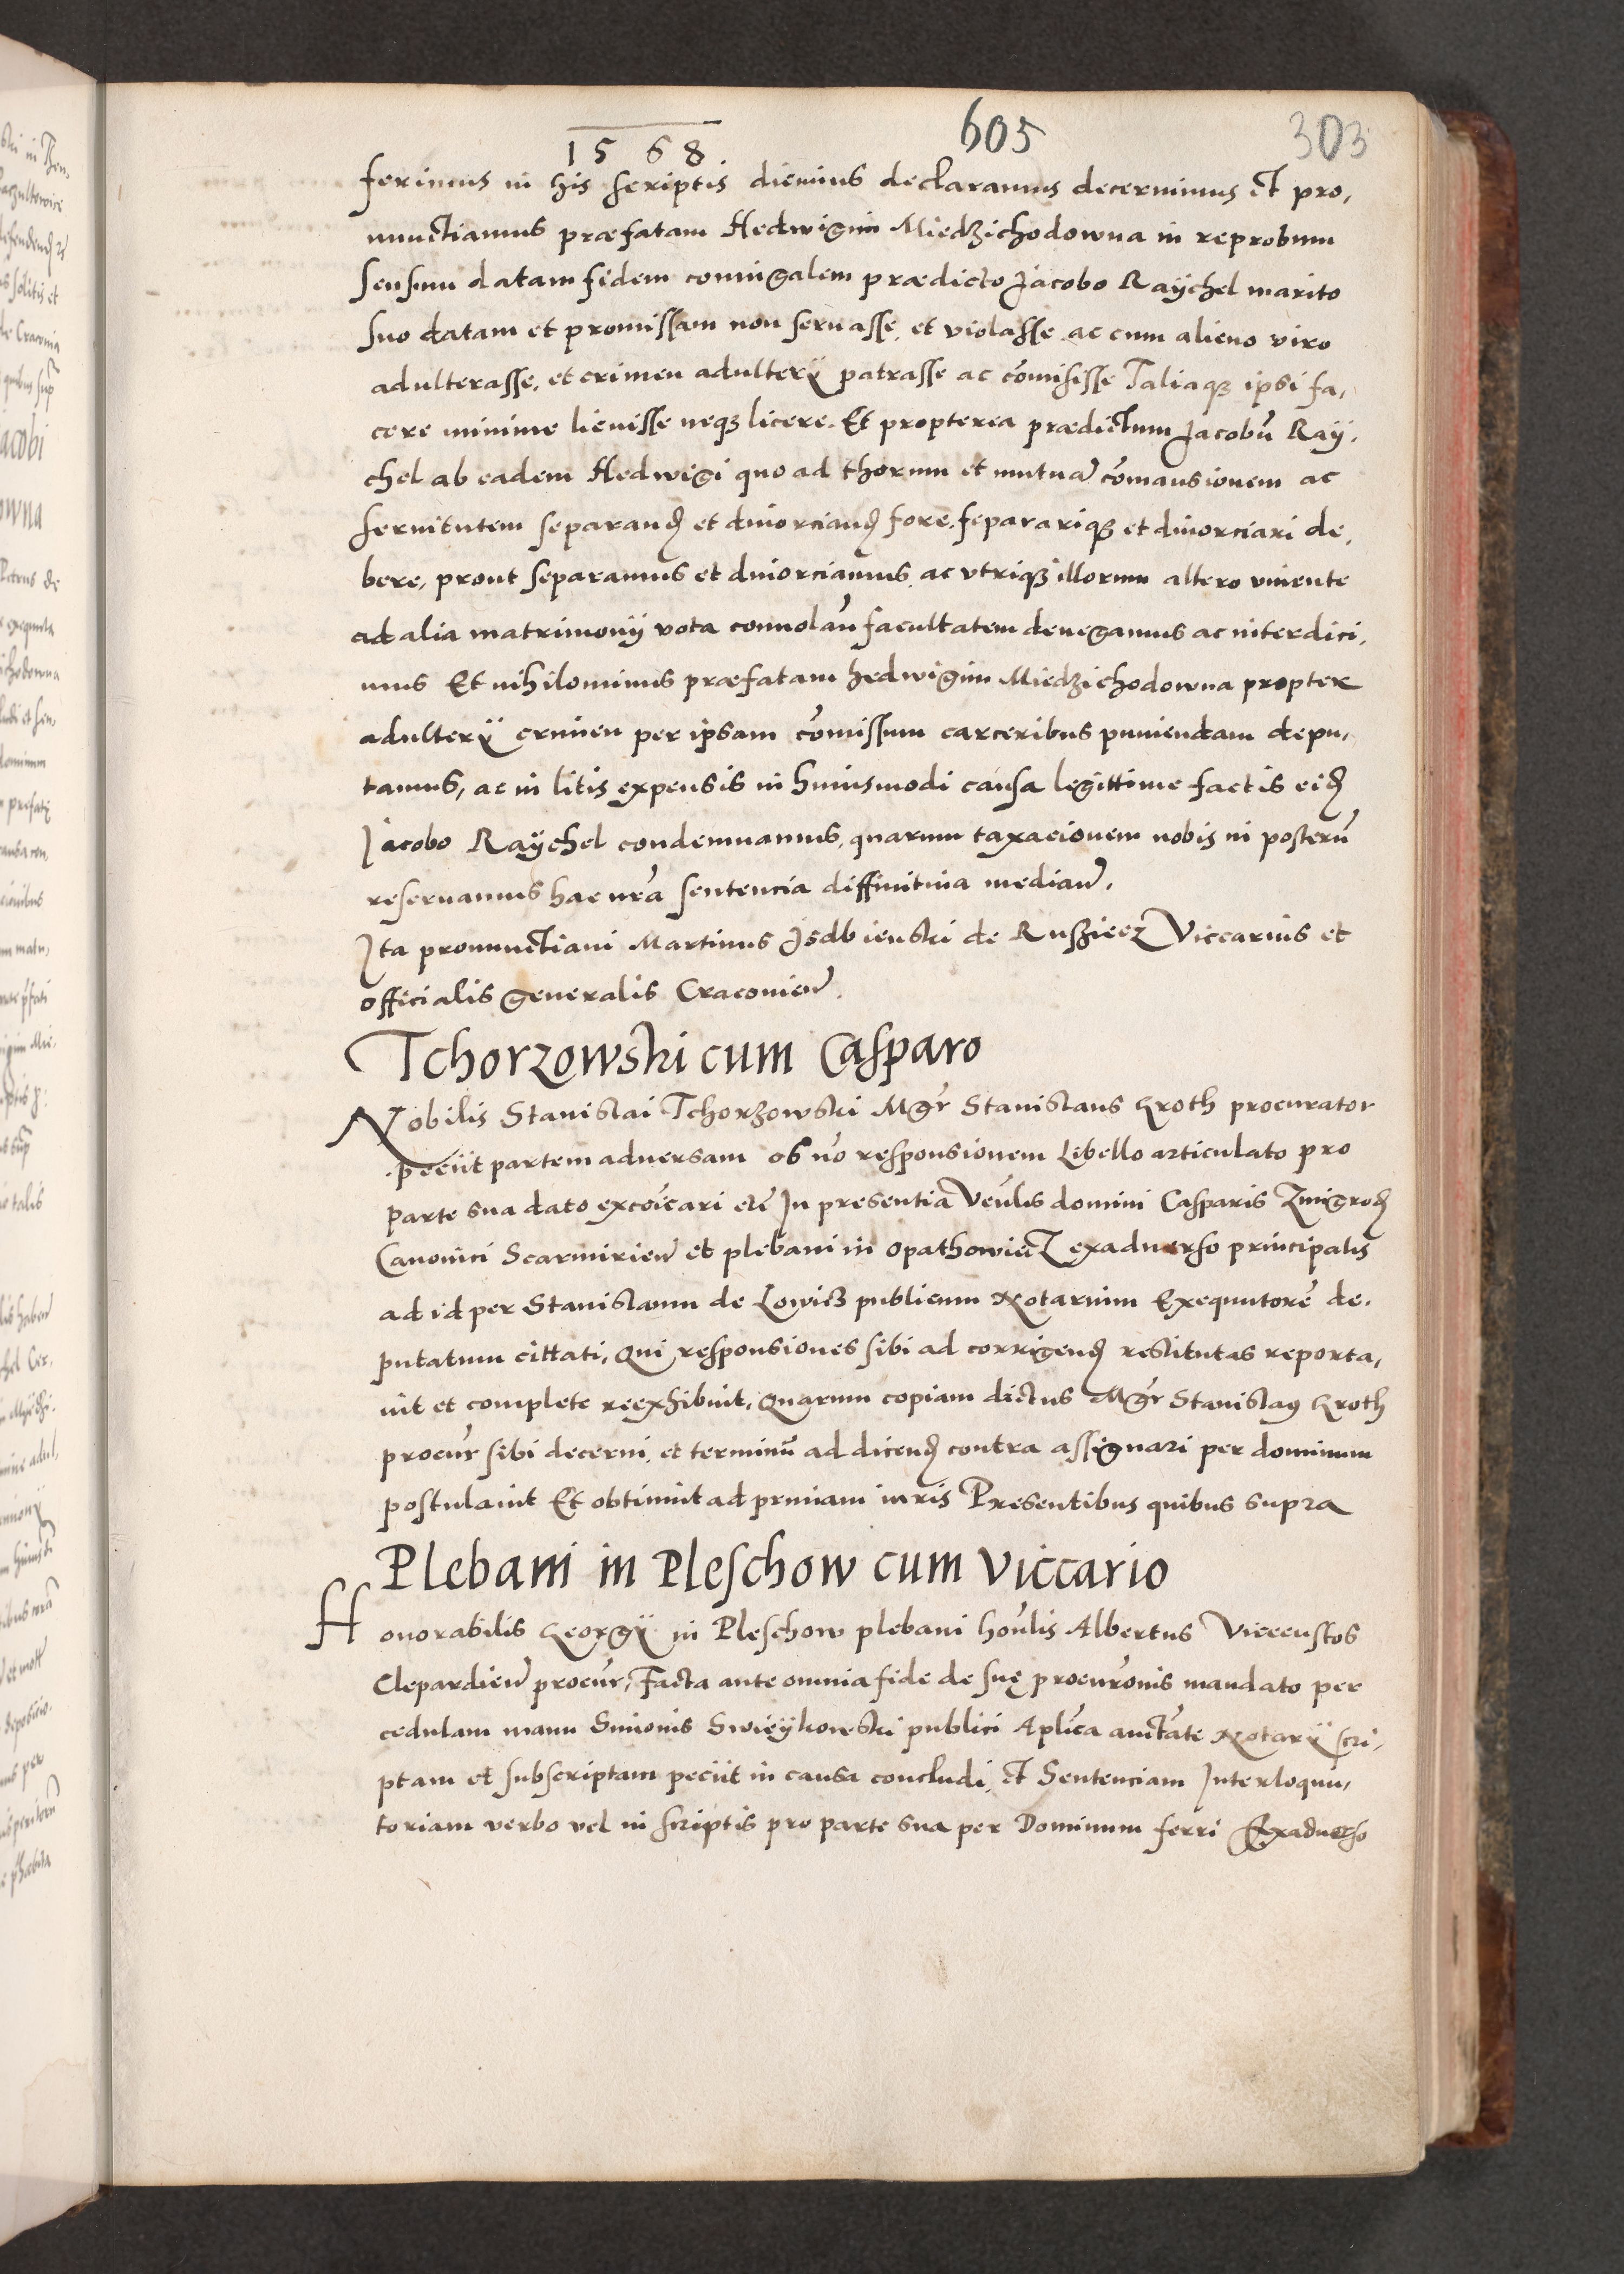 1568 605 303
ferimus in his scriptis dicimus declaramus decernimus et pro,
nunctiamus præfatam Hedwigim Miedzichodowna in reprobum
sensum datam fidem coniugalem prædicto Jacobo Raÿchel marito
suo datam et promissam non seruasse, et violasse ac cum alieno viro
adulterasse, et crimen adulterÿ patrasse ac cōmisisse Taliaqȝ ipsi fa,
cere minime licuisse neqȝ licere. Et propterea prædictum Jacobū Raÿ,
chel ab eadem Hedwigi quo ad thorum et mutuā cōmansionem ac
seruitutem separand et diuorciand fore, separariqȝ et diuorciari de,
bere, prout separamus et diuorciamus, ac vtriqȝ illorum altero viuente
ad alia matrimonÿ vota conuolan facultatem denegamus ac interdici,
mus Et nihilominus præfatam hedwigim Miedzichodowna propter
adulterÿ crimen per ipsam cōmissum carceribus puniendam depu,
tamus, ac in litis expensis in huiusmodi causa legittime factis eid
Jacobo Raÿchel condemnamus, quarum taxacionem nobis in posterū
reseruamus hac nrā sentencia diffinitiua median.
Ita pronunctiaui Martinus Isdbienski de Rusziecz Viccarius et
officialis generalis Cracouien.
Tchorzowski cum Casparo
Nobilis Stanislai Tchorzowski Mgr Stanislaus Groth procurator
peciit partem aduersam ob nō responsionem Libello articulato pro
parte sua dato excōicari etc In presentia Venlis domini Casparis Zmigrod
Canonici Scarmirien et plebani in Opathowiecz exaduerso principalis
ad id per Stanislaum de Lowicz publicum Notarium Exequutorē de,
putatum cittati, Qui responsiones sibi ad corrigend restitutas reporta,
uit et complete reexhibuit, Quarum copiam dictus Mgr Stanislaus Groth
procur sibi decerni, et terminū ad dicend contra assignari per dominum
postulauit Et obtinuit ad primam iuris Presentibus quibus supra
Plebani in Pleschow cum Viccario
Honorabilis Georgÿ in Pleschow plebani honlis Albertus Vicecustos
Clepardien procur, Facta ante omnia fide de suę procurōnis mandato per
cedulam manu Simonis Swieÿkowski publici Aplica auctāte Notarÿ scri,
ptam et subscriptam peciit in causa concludi, et Sentenciam Interloquu,
toriam verbo vel in scriptis pro parte sua per Dominum ferri Exaduerso